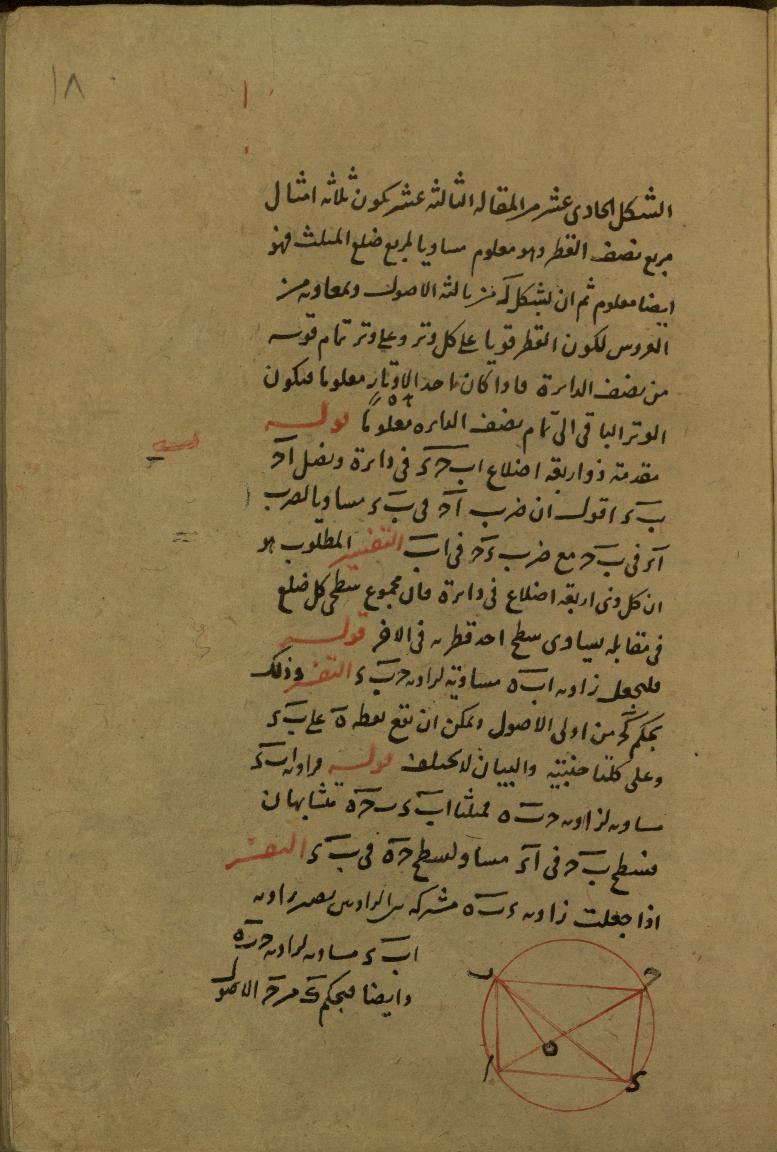 ١٨
الشكل الحادى عشر من المقاله الثالثه عشر يكون ثلاثه امثال
مربع نصف القطر وهو معلوم مساويا لمربع ضلع المثلث فهو
ايضا معلوم ثم ان بشكل من ثالثه الاصول
العروس لكون القطر قويا على كل وتر وعلى وتر تمام قوسه
من نصف الدايرة فاذا كان احد الاوتار معلوما فيكون
الوتر الباقى الى تمام نصف الدايره معلوما قوله
مقدمة ذو اربعة اضلاع اب حء فى دايرة ونصل آح
بء اقول ان ضرب آح فى بء مساويا لضرب
آء فى بح مع ضرب ءح فى اب التفسير المطلوب هو
ان كل ذى اربعة اضلاع فى دايرة فان مجموع سطحى كل ضلع
فى مقابله يساوى سطح احد قطريه فى الاخر قوله
فليجعل زاويه اب ه مساوية لزاويه حبء التفسير وذلك
بحكم كج من اولى الاصول ويمكن ان تقع نقطه ه على بء
وعلى كلتا جنبتيه والبيان لا يختلف قوله فزاويه ابء
مساويه لزاويه حبه فمثلثا ابء بحه متشابهان
فسطح بح فى آء مساو لسطح حه فى بء التفسير
اذا جعلت زاويه ءبه مشتركه بين الزاويتين يصير زاويه
ابء مساويه لزاويه حبه
وايضا فبحكم ك من ج الاصول
ب
ح
ه
ا
ء